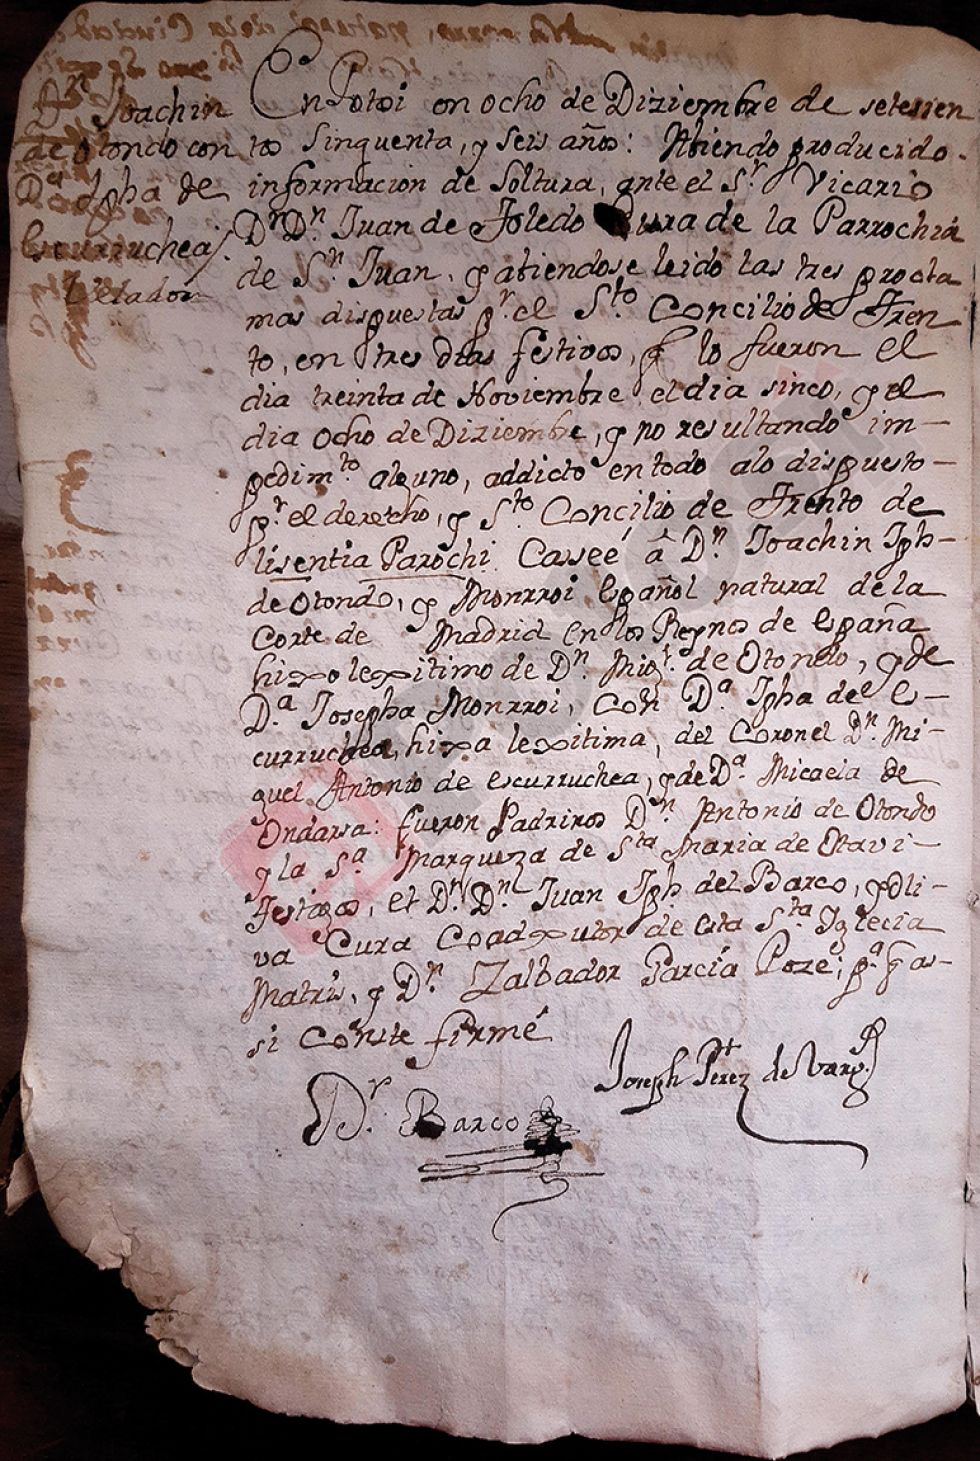 Dn Joachin
de Otondo con
Da Jpha de
Escurruchea
Velados
En Potosi en ocho de Diziembre de setesien
tos sinquenta, y seis años: Abiendo producido
informacion de soltura, ante el Sr Vicario
Dr Dn Juan de Toledo Cura de la Parrochia
de Sn Juan, y abiendose leido las tres procla
mas dispuestas pr el Sto Concilio de Tren
to, en tres dias festivos, q lo fueron el
dia treinta de Noviembre el dia sinco, y el
dia ocho de Diziembre, y no resultando im-
pedimto alguno, addicto en todo alo dispuesto-
pr el derecho, y Sto Concilio de Trento de
lisentia Parochi Casseé â Dn Joachin Jph-
de Otondo, y Monrroi Español natural de la
Corte de Madrid en los Reynos de España
hixo lexitimo de Dn Migl de Otondo, y de
Da Josepha Monrroi, con Da Jpha de Es-
curruchea, hixa lexitima, del Coronel Dn Mi-
guel Antonio de Escurruchea, y de Da Micaela de
Ondarsa: fueron Padrinos Dn Antonio de Otondo
y la Sa Marqueza de Sta Maria de Otavi-
Testigos, el Dr Dn Juan Jph del Barco, y Oli-
va Cura Coadxutor de esta Sta Iglecia
Matris, y Dn Zalbador Garcia Poze; pa q as-
si conste firmé
Joseph Perez de Varg
Dr Barco